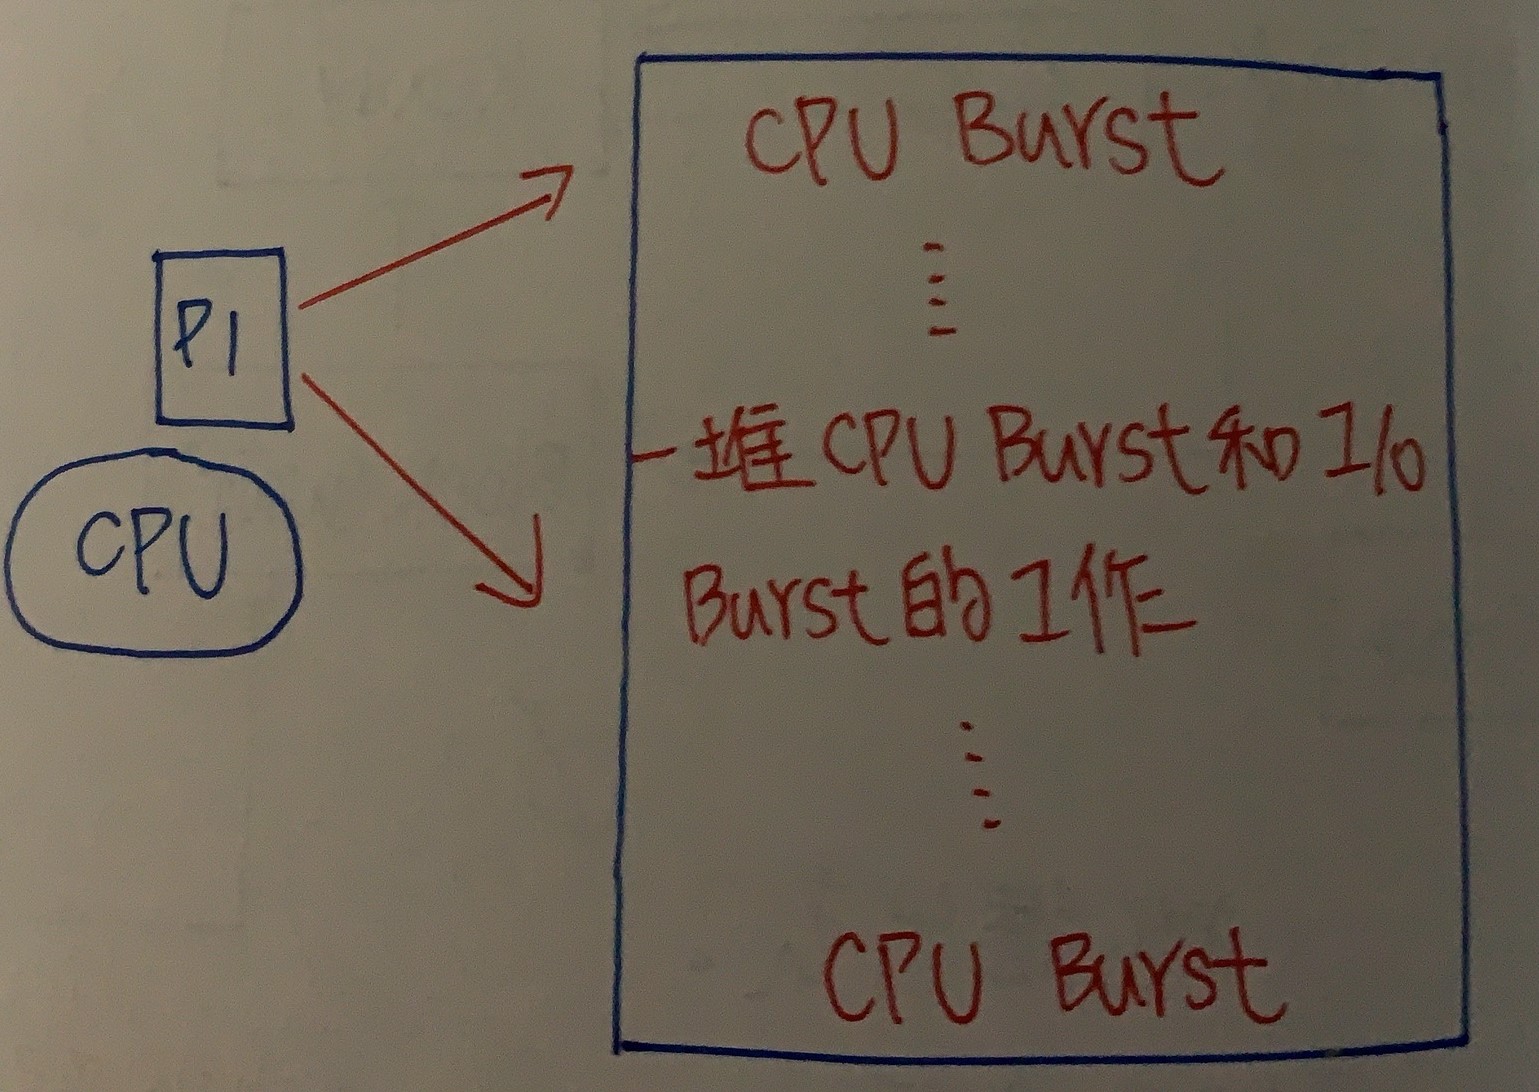 P1
CPU
CPU Burst
一堆 CPU Burst 和 I/O
Burst 的工作
CPU Burst